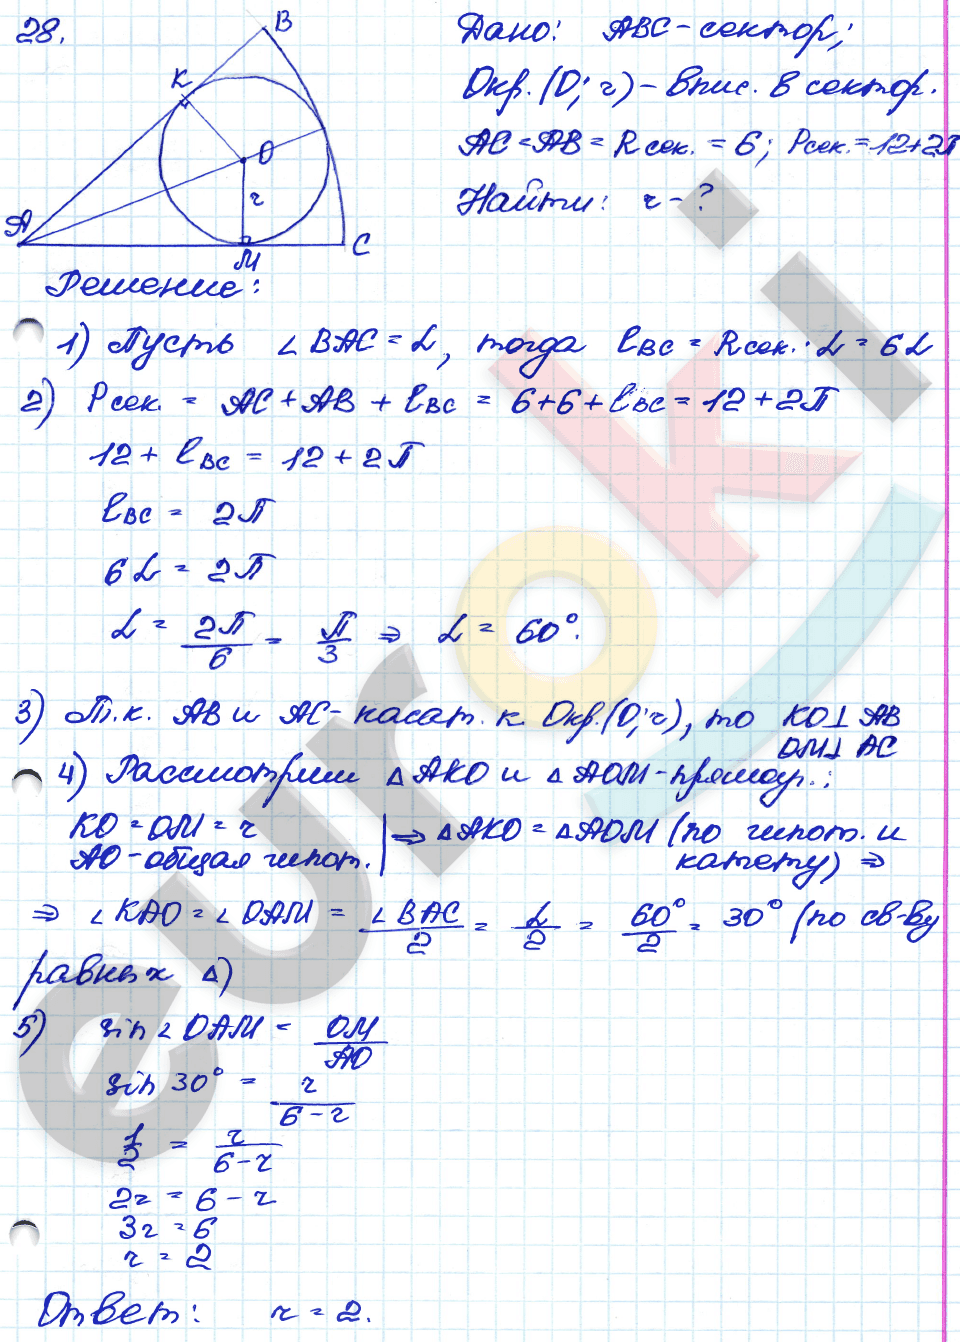 28.
B
K
O
r
A
M
C
Дано: ABC - сектор;
Окр.(O; r) - впис. в сектор.
AC = AB = R сек. = 6; Pсек. = 12+2π
Найти: r - ?
Решение:
1) Пусть ∠BAC = α, тогда ℓBC = Rсек. · α = 6α
2) Pсек. = AC + AB + ℓBC = 6+6+ℓBC = 12+2π
12 + ℓBC = 12 + 2π
ℓBC = 2π
6α = 2π
α = 2π/6 = π/3 ⇒ α = 60°.
3) Т.к. AB и AC - касат. к Окр.(O; r), то KO⊥AB
OM⊥AC
4) Рассмотрим △AKO и △AOM - прямоуг.:
KO = OM = r | ⇒ △AKO = △AOM (по гипот. и
AO - общая гипот. | катету) ⇒
⇒ ∠KAO = ∠OAM = ∠BAC/2 = α/2 = 60°/2 = 30° (по св-ву
равных △)
5) sin∠OAM = OM/AO
sin 30° = r/(6-r)
1/2 = r/(6-r)
2r = 6 - r
3r = 6
r = 2
Ответ: r = 2.
euroki